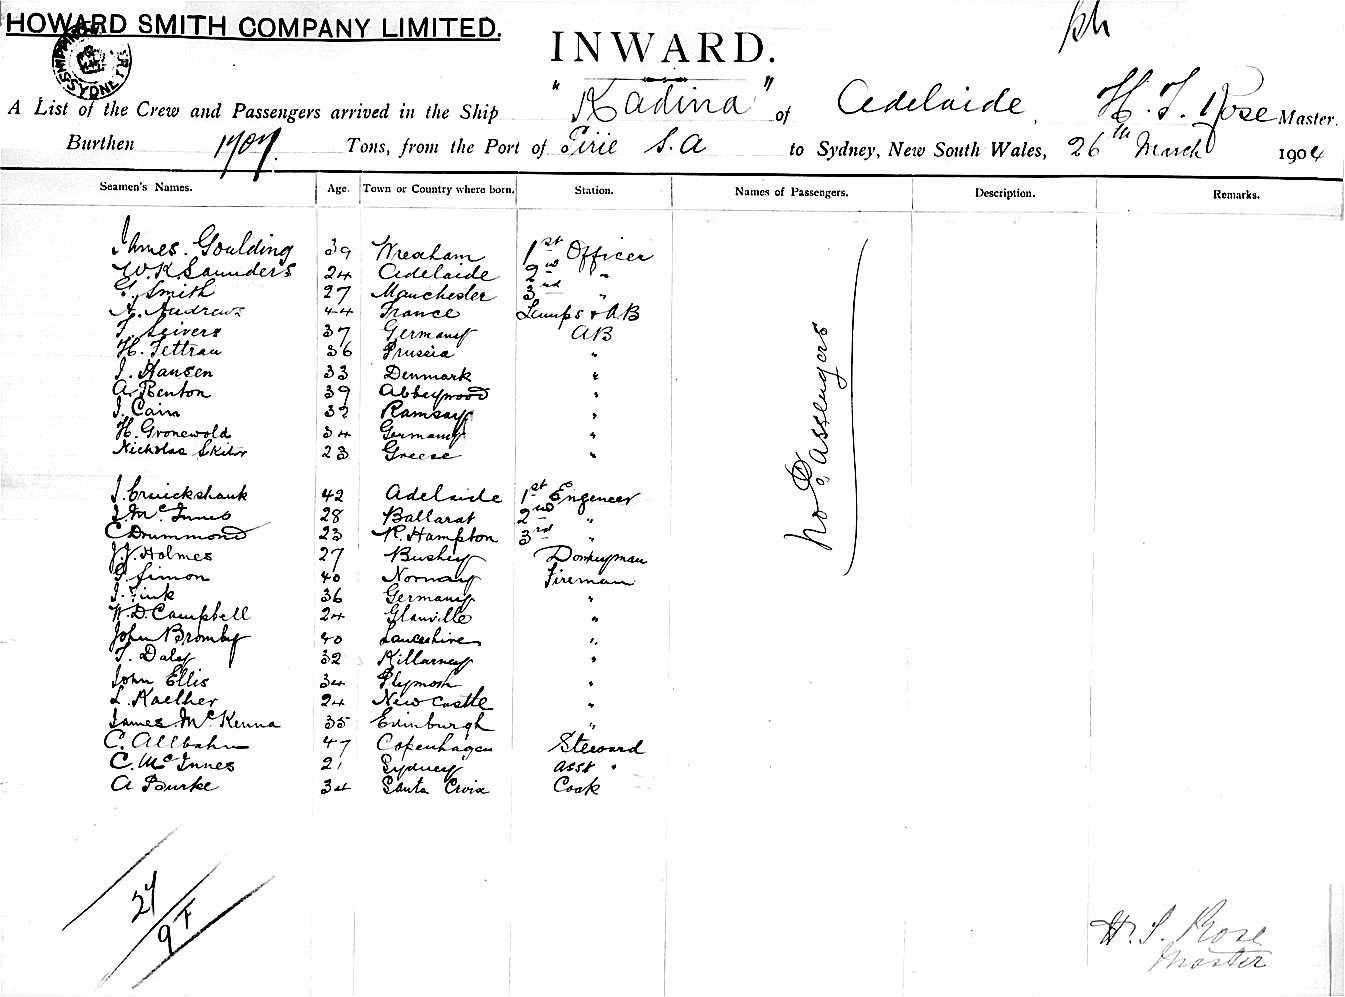 HOWARD SMITH COMPANY LIMITED.
INWARD.
A List of the Crew and Passengers arrived in the Ship "Kadina" of Adelaide, H. T. Rose Master.
Burthen 1707 Tons, from the Port of Pirie S.A to Sydney, New South Wales, 26th March 1904
Seamen's Names. Age. Town or Country where born. Station. Names of Passengers. Description. Remarks.
James Goulding 39 Wrexham 1st Officer
W.K. Saunders 24 Adelaide 2nd "
G. Smith 27 Manchester 3rd "
A. Andrews 44 France Lamps & AB
37 Germany AB
H. Tettrau 36 Prussia "
J. Hansen 33 Denmark "
A. Renton 39 Abbeywood "
J. Cain 32 Ramsay "
H. Gronewold 34 Germany "
Nicholas 23 Greese "
No Passengers
J. Cruickshank 42 Adelaide 1st Engeneer
J. McInnes 28 Ballarat 2nd "
C Drummond 23 R. Hampton 3rd "
J.J. Holmes 27 Bushey Donkeyman
Simon 40 Norway Fireman
J. Fink 36 Germany "
W.D. Campbell 24 Glanville "
John Bromby 40 Lanceshire "
T. Daly 32 Killarney "
John Ellis 34 Plymoth "
L. Kaelher 24 New Castle "
James McKenna 35 Edinburgh "
C. Allbahn 47 Copenhagen Steward
C. McInnes 21 Sydney asst "
A Bourke 34 Santa Croix Cook
27
9F
H. T. Rose
Master